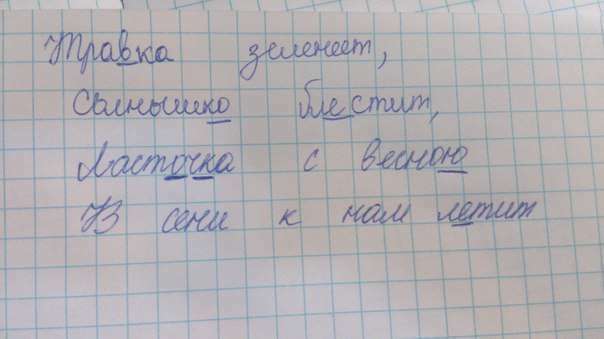 Травка зеленеет,
Солнышко блестит,
Ласточка с весною
В сени к нам летит